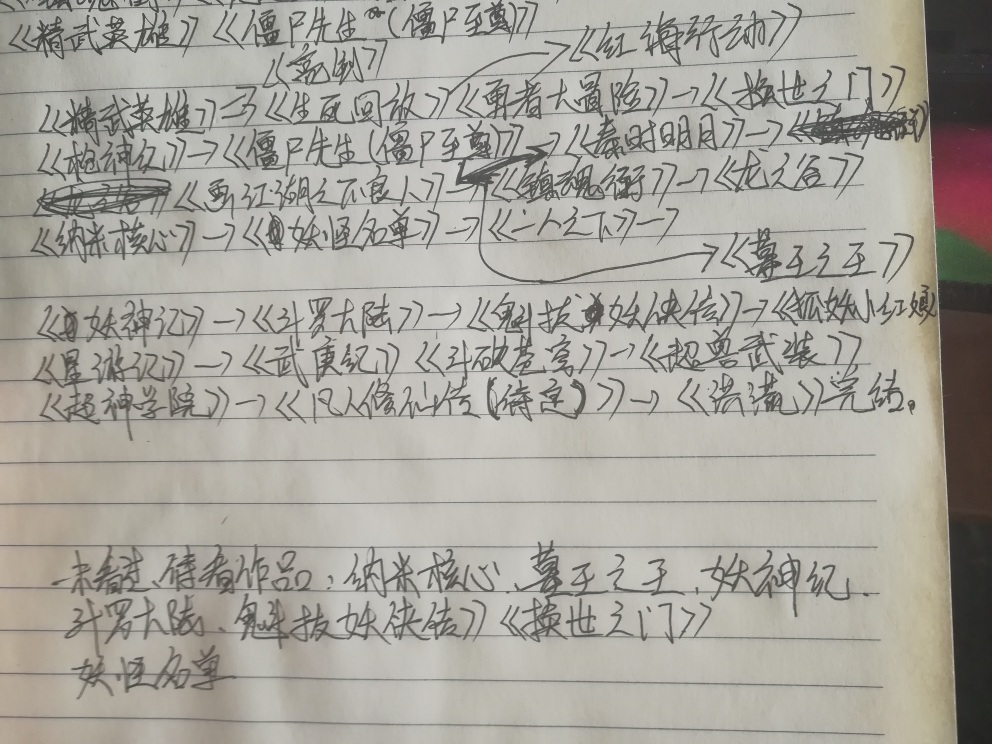 《精武英雄》《僵尸先生 (僵尸至尊)》
《亮剑》
《红海行动》
《精武英雄》→《生死回放》《勇者大冒险》→《换世之门》
《枪神纪》→《僵尸先生(僵尸至尊)》→《秦时明月》→
《画江湖之不良人》《镇魂街》→《龙之谷》
《纳米核心》→《妖怪名单》→《一人之下》→
《墓王之王》
《妖神记》→《斗罗大陆》→《魁拔妖侠传》→《狐妖小红娘》
《星游记》→《武庚纪》《斗破苍穹》→《超兽武装》
《超神学院》→《凡人修仙传(待定)》→《洪荒》完结。
未看过、待看作品:纳米核心、墓王之王、妖神纪、
斗罗大陆、魁拔妖侠传》《换世之门》
妖怪名单